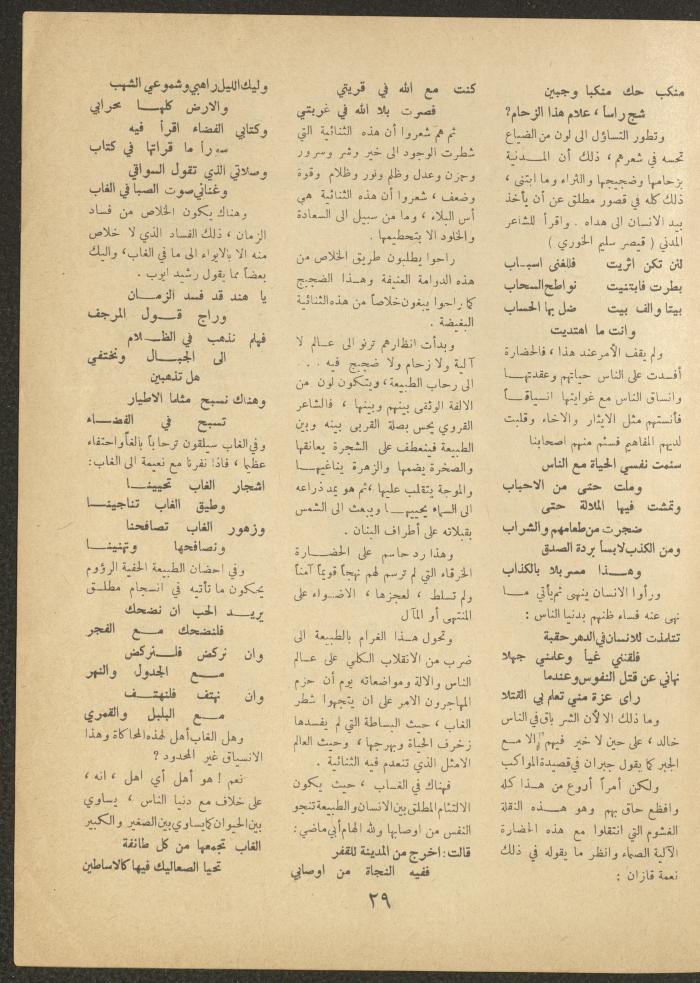 منكب حك منكبا وجبين
شج رأساً ، علام هذا الزحام؟
وتطور التساؤل الى لون من الضياع
تحسه في شعرهم ، ذلك أن المــدنية
بزحامها وضجيجها والثراء وما ابتنى ،
ذلك كله في قصور مطلق عن أن يأخذ
بيد الانسان الى هداه . واقرأ للشاعر
المدني ( قيصر سليم الخوري )
لئن تكن اثريت فللغنى اسبــاب
بطرت فابتنيت نواطح السحاب
بيتا والف بيت ضل بها الحساب
وانت ما اهتديت
ولم يقف الأمر عند هذا ، فالحضارة
أفسدت على الناس حياتهم وعقدتهــا
وانساق الناس مع غوايتها انسياقــاً
فأنستهم مثل الايثار والاخاء وقلبت
لديهم المفاهيم فسئم منهم اصحابنا
سئمت نفسي الحياة مع الناس
وملت حتى من الاحباب
وتمشت فيها الملالة حتى
ضجرت من طعامهم والشراب
ومن الكذب لابسا بردة الصدق
وهــذا مسربلا بالكذاب
ورأوا الانسان ينهى ثم يأتي مــا
نهى عنه فساء ظنهم بدنيا الناس :
تتلمذت للانسان في الدهر حقبة
فلقنني غياً وعلمني جهلا
نهاني عن قتل النفوس وعندما
رأى عزة مني تعلم بي القتلا
وما ذلك الا لأن الشر باق في الناس
خالد ، على حين لا خير فيهم إلا مــع
الجبر كما يقول جبران في قصيدة المواكب
ولكن أمراً أروع من هــذا كله
وافظع حاق بهم وهو هــذه النقلة
الغشوم التي انتقلوا مع هذه الحضارة
الآلية الصماء وانظر ما يقوله في ذلك
نعمة قازان :
كنت مع الله في قريتي
فصرت بلا الله في غربتي
ثم هم شعروا أن هذه الثنائية التي
شطرت الوجود الى خير وشر وسرور
وحزن وعدل وظلم ونور وظلام وقوة
وضعف ، شعروا أن هذه الثنائية هي
أس البلاء ، وما من سبيل الى السعادة
والخلود الا بتحطيمها .
راحوا يطلبون طريق الخلاص من
هذه الدوامة العنيفة وهــذا الضجيج
كما راحوا يبغون خلاصاً من هذه الثنائية
البغيضة .
وبدأت انظارهم ترنو الى عــالم لا
آلية ولا زحام ولا ضجيج فيه . . .
الى رحاب الطبيعة ، ويتكون لون من
الالفة الوثقى بينهم وبينها ، فالشاعر
القروي يحس بصلة القربى بينه وبين
الطبيعة فينعطف على الشجرة يعانقها
والصخرة يضمها والزهرة يناغيهــا
والموجة يتقلب عليها ، ثم هو يمد ذراعه
الى السماء يحييهــا ويبعث الى الشمس
بقبلاته على أطراف البنان .
وهذا رد حاسم على الحضــارة
الخرقاء التي لم ترسم لهم نهجاً قويماً آمناً
ولم تسلط ، لعجزها ، الاضــواء على
المنتهى أو المآل
وتحول هــذا الغرام بالطبيعة الى
ضرب من الانقلاب الكلي على عــالم
الناس والآلة ومواضعاته يوم أن حزم
المهاجرون الامر على ان يتجهوا شطر
الغاب ، حيث البساطة التي لم يفسدها
زخرف الحياة وبهرجها ، وحيث العالم
الامثل الذي تنعدم فيه الثنائية .
فهناك في الغــاب ، حيث يكون
الالتئام المطلق بين الانسان والطبيعة تنجو
النفس من اوصابها ولله الهام أبي ماضي :
قالت : اخرج من المدينة للقفر
ففيه النجاة من اوصابي
وليك الليل راهبي وشموعي الشهب
والارض كلهــا محرابي
وكتابي الفضاء اقرأ فيه
سوراً ما قرأتها في كتاب
وصلاتي الذي تقول السواقي
وغنائي صوت الصبا في الغاب
وهناك يكون الخلاص من فساد
الزمان ، ذلك الفساد الذي لا خلاص
منه الا بالايواء الى ما في الغاب، واليك
بعضاً مما يقول رشيد ايوب .
يا هند قد فسد الزمــان
وراج قــول المرجف
فهلم نذهب في الظــلام
الى الجبــال ونختفي
هل تذهبين
وهناك نسبح مثلما الاطيار
تسبح في الفضــاء
وفي الغاب سيلقون ترحاباً بالغاً واحتفاء
عظيما ، فاذا نفرنا مع نعيمة الى الغاب :
اشجار الغاب تحيينــا
وطيق الغاب تناجينــا
وزهور الغاب تصافحنا
ونصافحها وتهنينــا
وفي احضان الطبيعة الحفية الرؤوم
يحيكون ما تأتيه في انسجام مطلــق
يريــد الحب ان نضحك
فلنضحك مــع الفجر
وان نركض فلــنركض
مــع الجدول والنهر
وان نهتف فلنهتــف
مــع البلبل والقمري
وهل الغاب أهل لهذه المحاكاة وهذا
الانسياق غير المحدود ؟
نعم ! هو أهل أي أهل ، انه ،
على خلاف مع دنيا الناس ، يساوي
بين الحيوان كما يساوي بين الصغير والكبير
الغاب تجمعها من كل طائفة
تحيا الصعاليك فيها كالاساطين
٢٩